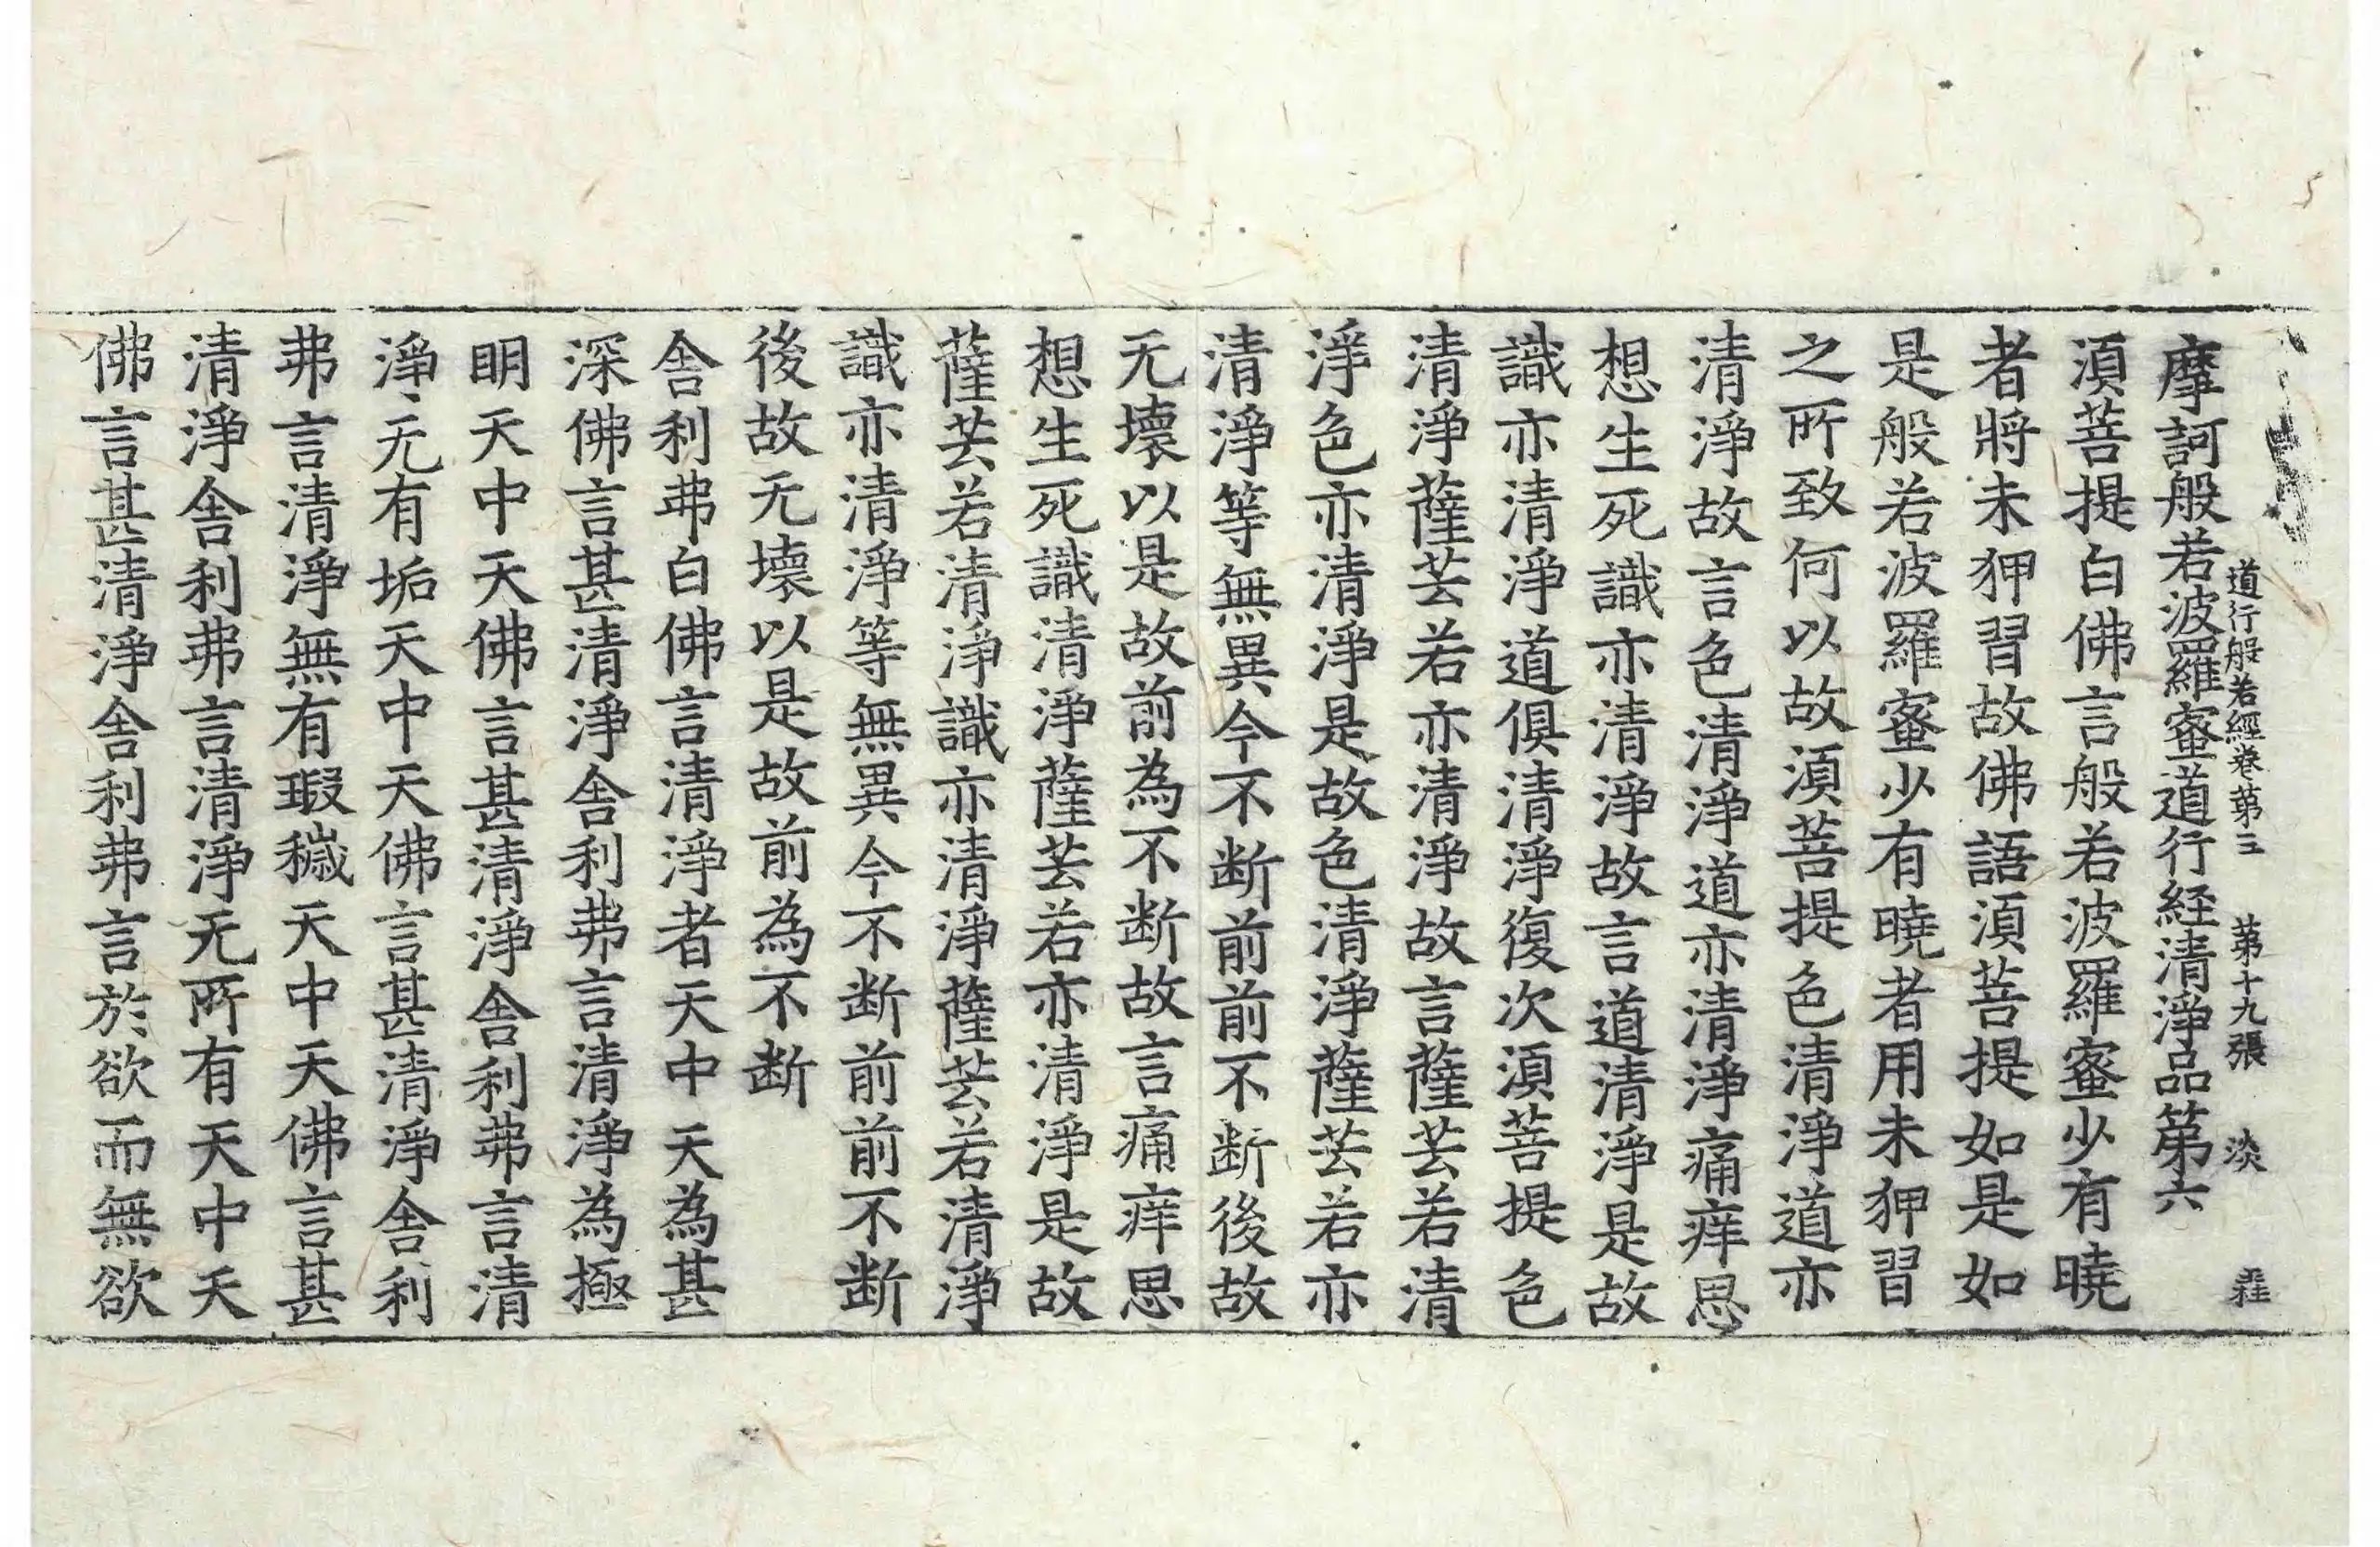 道行般若經卷第三 第十九張 淡
摩訶般若波羅蜜道行経清淨品第六
湏菩提白佛言般若波羅蜜少有曉
者將未狎習故佛語湏菩提如是如
是般若波羅蜜少有曉者用未狎習
之所致何以故湏菩提色清淨道亦
清淨故言色清淨道亦清淨痛痒思
想生死識亦清淨故言道清淨是故
識亦清淨道俱清淨復次湏菩提色
清淨薩芸若亦清淨故言薩芸若清
淨色亦清淨是故色清淨薩芸若亦
清淨等無異今不断前前不断後故
无壞以是故前為不断故言痛痒思
想生死識清淨薩芸若亦清淨是故
薩芸若清淨識亦清淨薩芸若清淨
識亦清淨等無異今不断前前不断
後故无壞以是故前為不断
舍利弗白佛言清淨者天中天為甚
深佛言甚清淨舍利弗言清淨為極
明天中天佛言甚清淨舍利弗言清
淨无有垢天中天佛言甚清淨舍利
弗言清淨無有瑕穢天中天佛言甚
清淨舍利弗言清淨无所有天中天
佛言甚清淨舍利弗言於欲而無欲